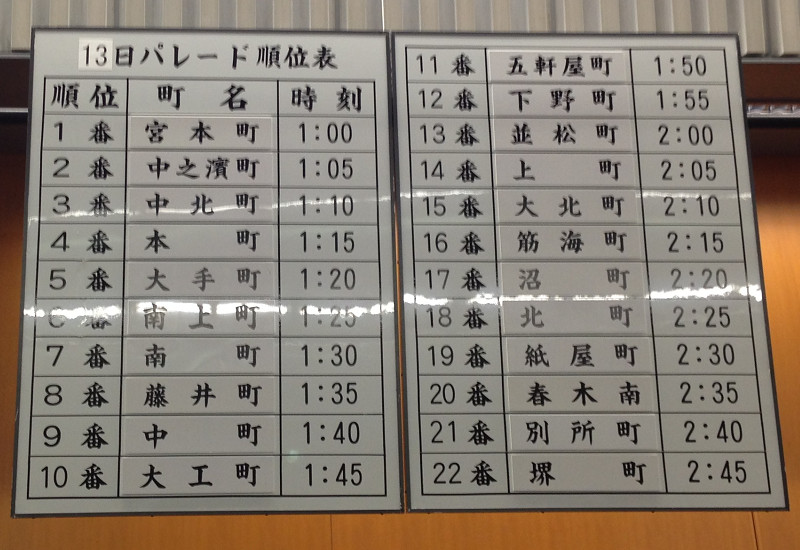 13日パレード順位表
順位 町名 時刻
1番 宮本町 1:00
2番 中之濱町 1:05
3番 中北町 1:10
4番 本町 1:15
5番 大手町 1:20
6番 南上町 1:25
7番 南町 1:30
8番 藤井町 1:35
9番 中町 1:40
10番 大工町 1:45
11番 五軒屋町 1:50
12番 下野町 1:55
13番 並松町 2:00
14番 上町 2:05
15番 大北町 2:10
16番 筋海町 2:15
17番 沼町 2:20
18番 北町 2:25
19番 紙屋町 2:30
20番 春木南 2:35
21番 別所町 2:40
22番 堺町 2:45